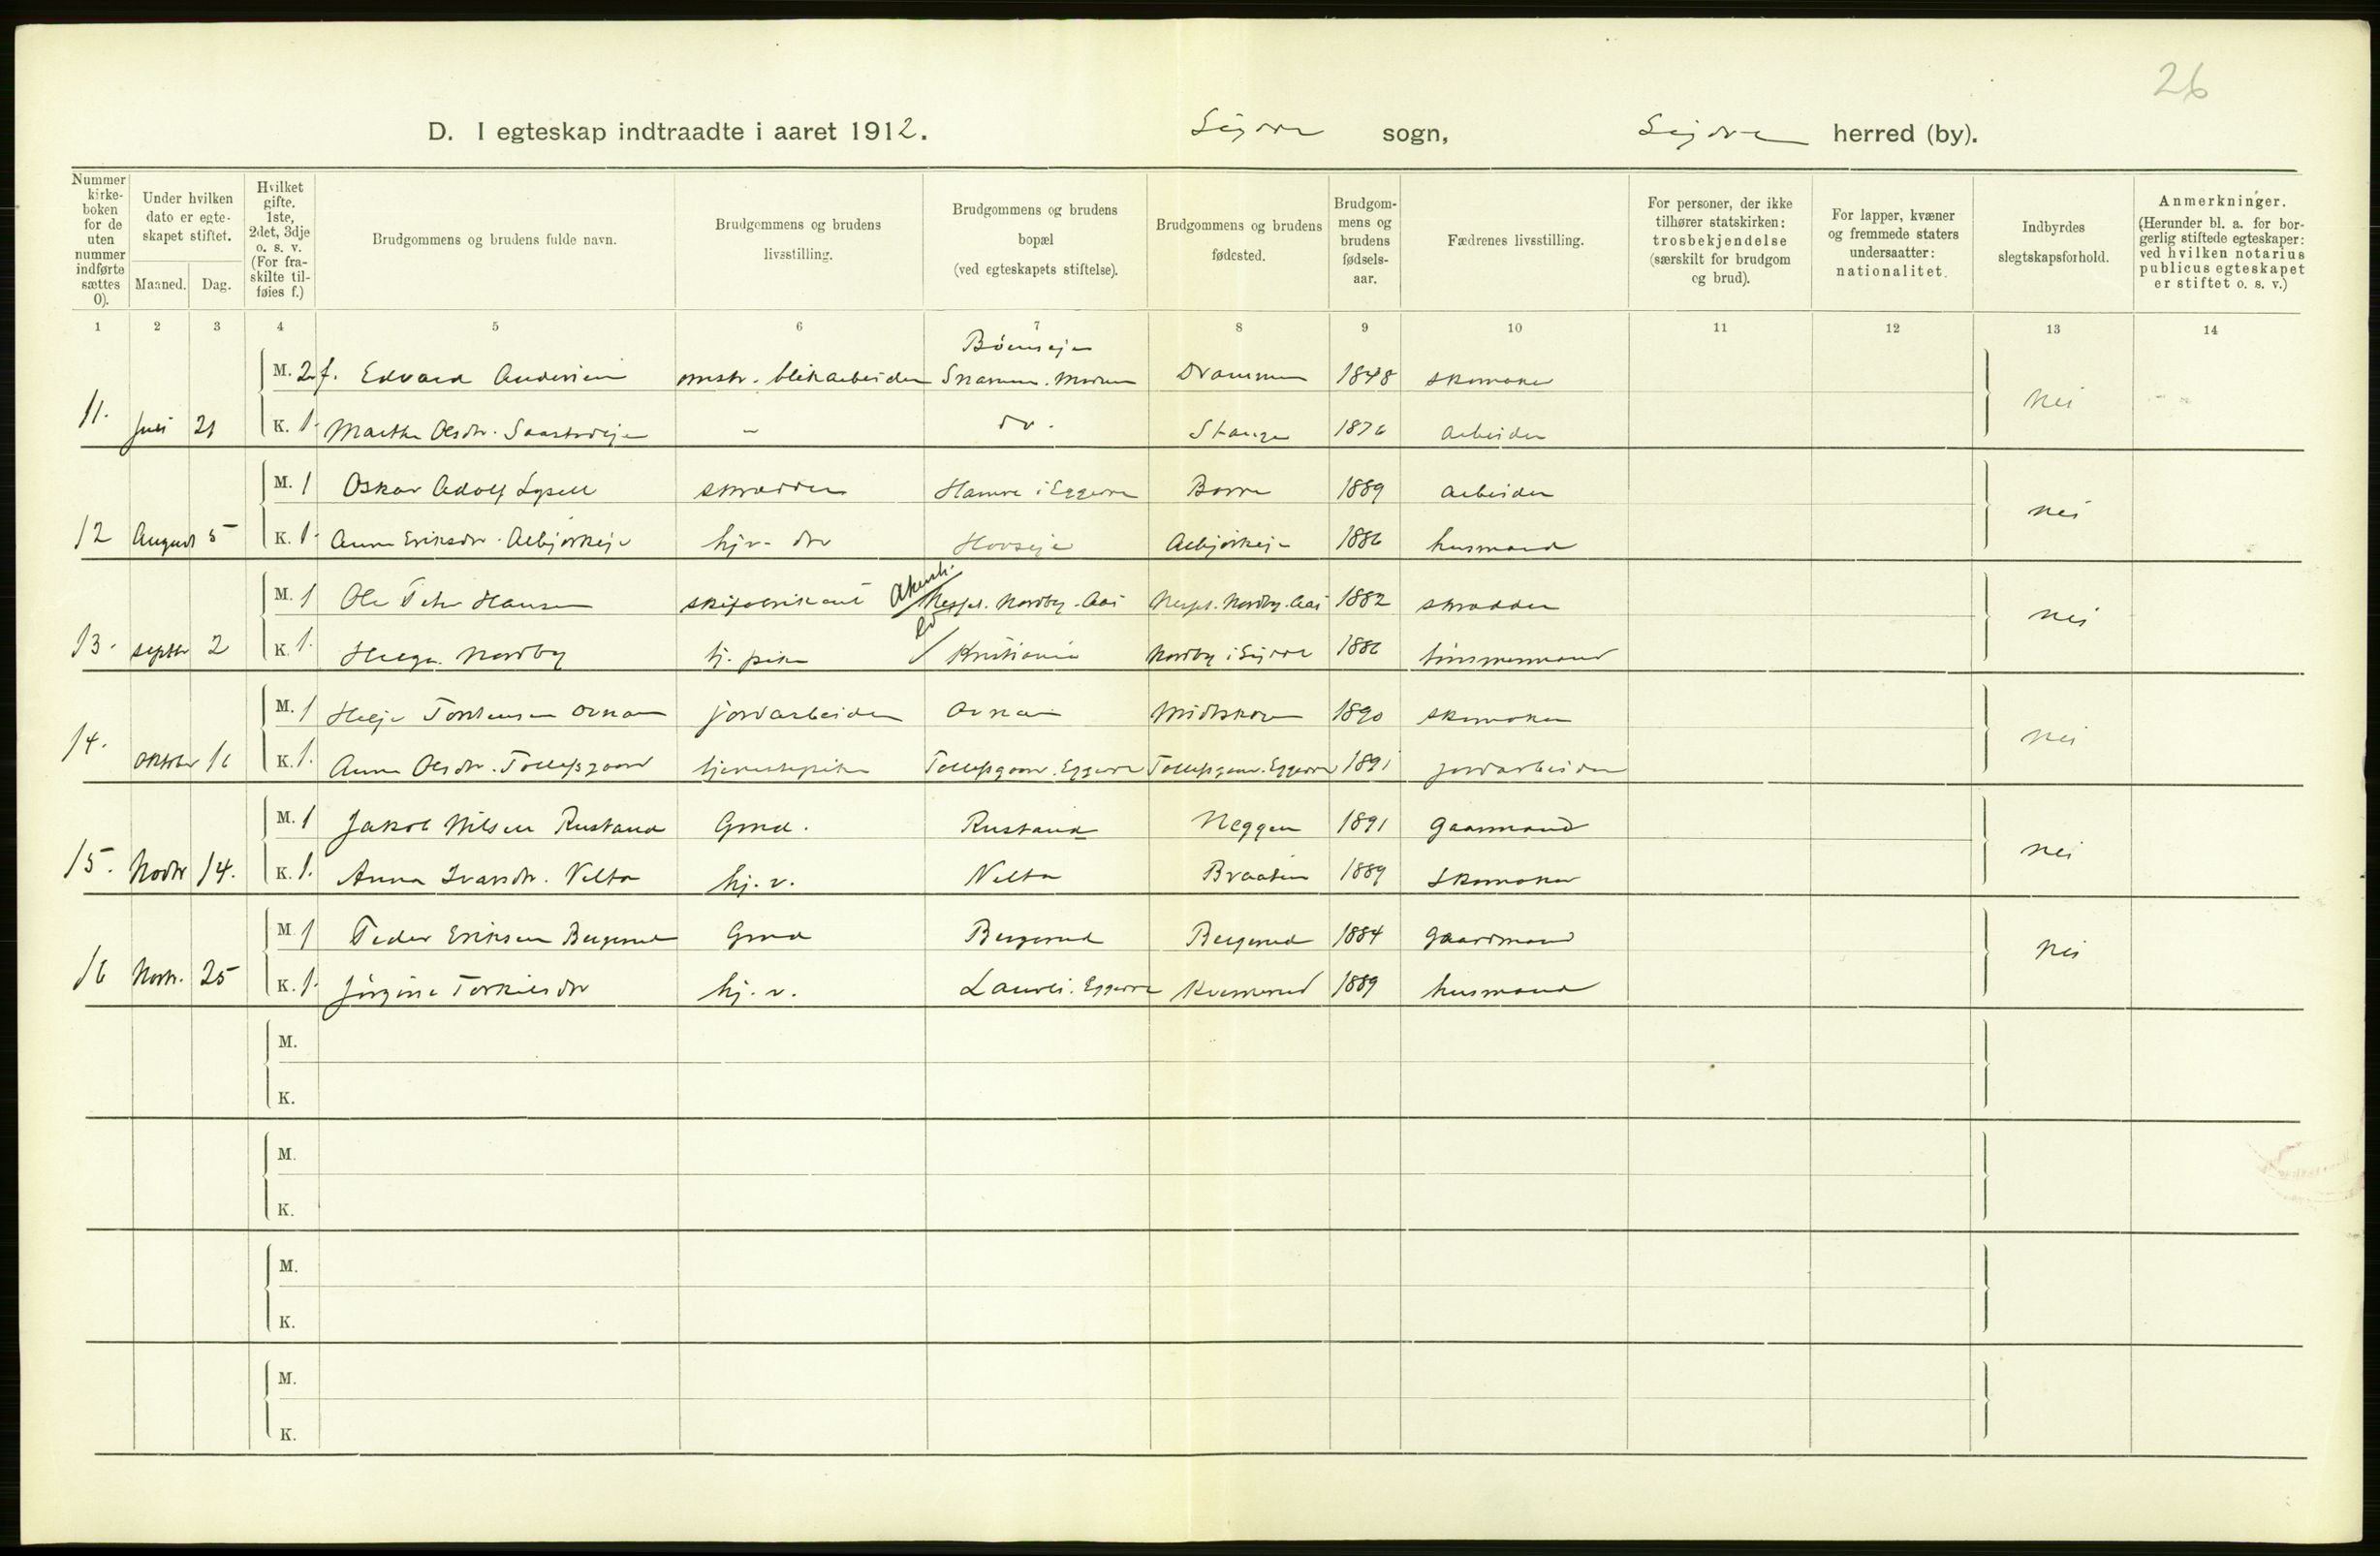 26
D. I egteskap indtraadte i aaret 1912. sogn, herred (by).
Nummer kirke-boken for de uten nummer indførte sættes 0).
Under hvilken dato er egte-skapet stiftet.
Maaned. Dag.
Hvilket gifte. 1ste, 2det, 3dje o. s. v. (For fra-skilte til-føies f.)
Brudgommens og brudens fulde navn.
Brudgommens og brudens livsstilling.
Brudgommens og brudens bopæl (ved egteskapets stiftelse).
Brudgommens og brudens fødested.
Brudgom-mens og brudens fødsels-aar.
Fædrenes livsstilling.
For personer, der ikke tilhører statskirken: trosbekjendelse (særskilt for brudgom og brud).
For lapper, kvæner og fremmede staters undersaatter: nationalitet.
Indbyrdes slegtskapsforhold.
Anmerkninger. (Herunder bl. a. for bor-gerlig stiftede egteskaper: ved hvilken notarius publicus egteskapet er stiftet o. s. v.)
1 2 3 4 5 6 7 8 9 10 11 12 13 14
M. 2. f. Edvard Andersen blikarbeider Snarum. Modum Drammen 1848 skomaker
11. Juli 21 K. 1. Marthe Olsdtr. — do. Stange 1876 arbeider nei
M. 1 Oskar Adolf Lysell skrædder Hamre i Eggedal Borre 1889 arbeider
12 August 5 K. 1. Anne Eriksdtr. hjv. dtr Hovseje 1886 husmand nei
M. 1 Ole Peter Hansen skifabrikant Nordby. Aas Nordby. Aas 1882 skrædder
13. septbr 2 K. 1. Helga Nordby tj. pike Kristiania Nordby i 1886 tømmermand nei
M. 1 Helje Torstensen jordarbeider Midtskogen 1890 skomaker
14. oktober 16 K. 1. Anne Olsdtr. Tollefsgaard tjenestepike Tollefsgaard. Tollefsgaard. 1891 jordarbeider nei
M. 1 Jakob Nilsen Rustand Gmd. Rustand Neggen 1891 gaardmand
15. Novbr 14. K. 1. Anna Ivarsdtr. Velta hj. v. Velta Braaten 1889 skomaker nei
M. 1 Peder Eriksen Bergerud Gmd Bergerud Bergerud 1884 gaardmand
16 Novbr. 25 K. 1. Jørgine Torkilsdtr hj. v. 1889 husmand nei
M.
K.
M.
K.
M.
K.
M.
K.